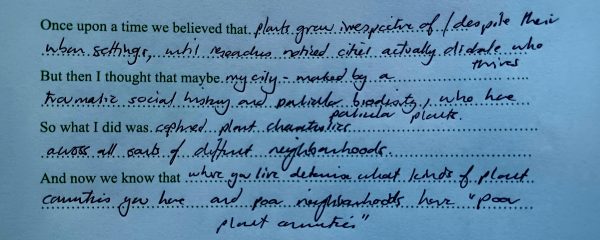 Once upon a time we believed that plants grew irrespective of / despite their
urban settings, until researches noticed cities actually dictate who
thrives
But then I thought that maybe my city - marked by a
traumatic social history and particular biodiversity, who have
particular plants.
So what I did was captured plant characteristics
across all sorts of different neighbourhoods.
And now we know that where you live determine what kinds of plant
communities you have and poor neighbourhoods have "poor
plant communities"